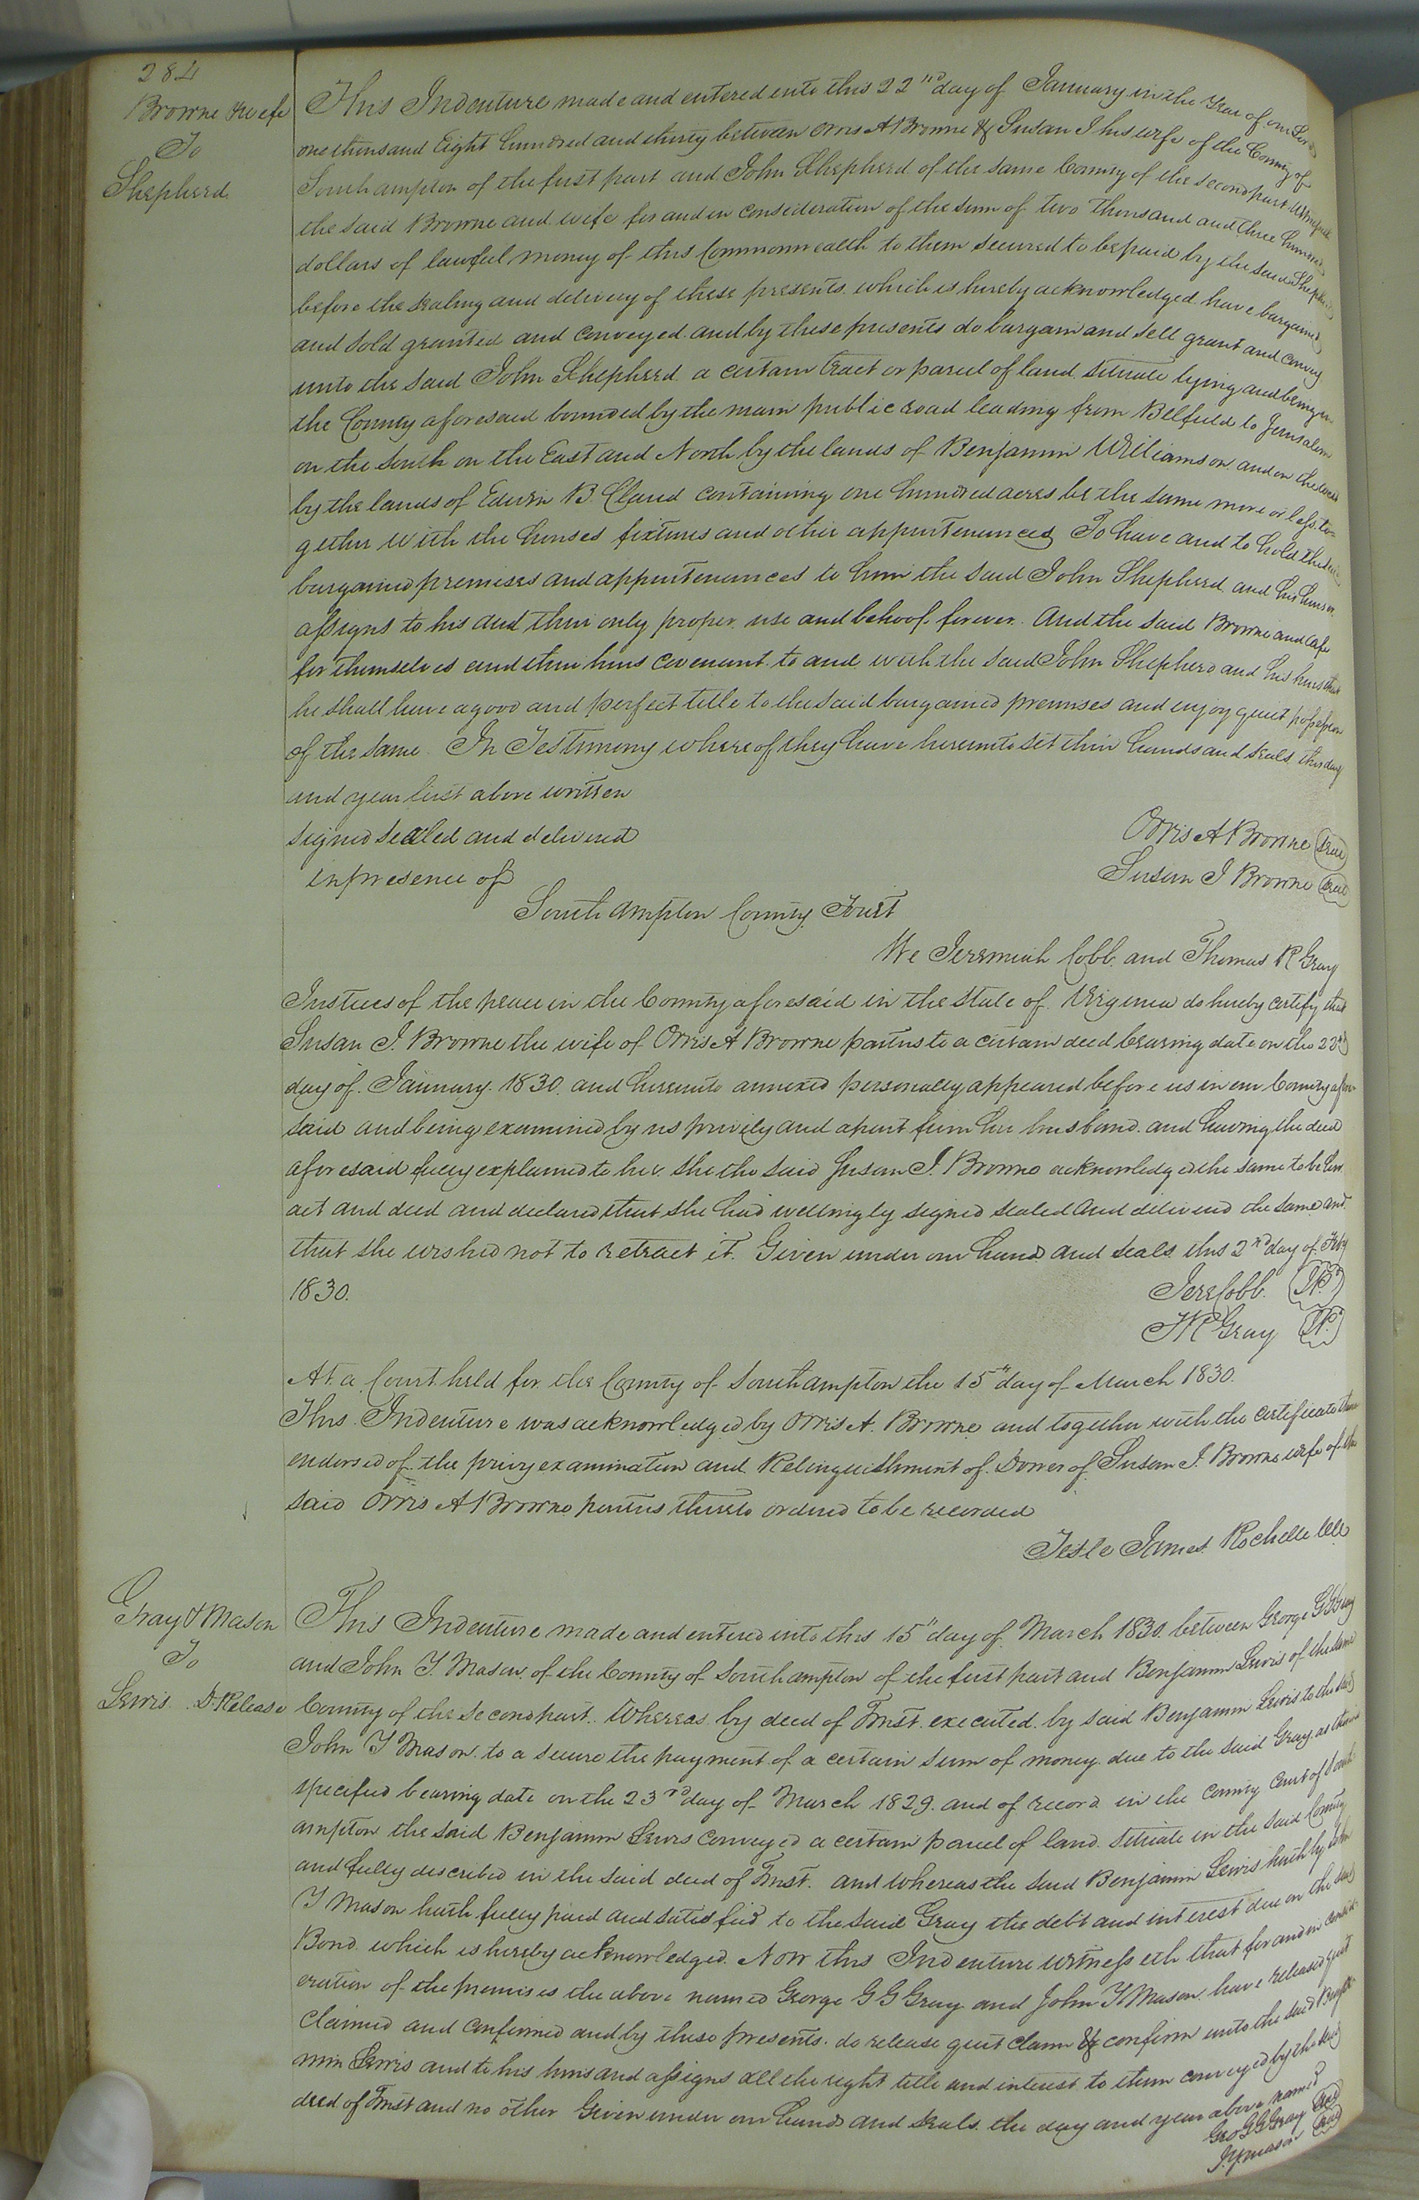 284
Browne & wife
To
Shepherd
This Indenture made and entered into this 22nd day of January in the Year of our Lord
one thousand Eight hundred and thirty between Orris A Browne & Susan J his wife of the County of
Southampton of the first part and John Shepherd of the same County of the second part Witnesseth
the said Browne and wife for and in consideration of the sum of two thousand and three hundred
dollars of lawful money of this Commonwealth to them secured to be paid by the said Shepherd
before the sealing and delivery of these presents which is hereby acknowledged have bargained
and sold granted and conveyed and by these presents do bargain and sell grant and convey
unto the said John Shepherd a certain tract or parcel of land situate lying and being in
the County aforesaid bounded by the main public road leading from Belfield to Jerusalem
on the South on the East and North by the lands of Benjamin Williamson and on the West
by the lands of Edwin B. Claud containing one hundred acres be the same more or less to-
gether with the houses fixtures and other appurtenances To have and to hold the said
bargained premises and appurtenances to him the said John Shepherd and his heirs or
assigns to his and their only proper use and behoof forever. And the said Browne and wife
for themselves and their heirs covenant to and with the said John Shepherd and his heirs that
he shall have a good and perfect title to the said bargained premises and enjoy quiet possession
of the same. In Testimony whereof they have hereunto set their hands and seals this day
and year first above written
signed sealed and delivered
in presence of
Orris A Browne (seal)
Susan J Browne (seal)
Southampton County Towit
We Jeremiah Cobb. and Thomas R Gray
Justices of the peace in the County aforesaid in the State of Virginia do hereby certify that
Susan J. Browne the wife of Orris A Browne parties to a certain deed bearing date on the 22nd
day of January 1830. and hereunto annexed personally appeared before us in our County afore-
said and being examined by us privily and apart from her husband. and having the deed
aforesaid fully explained to her. she the said Susan J. Browne acknowledged the same to be her
act and deed and declared that she had willingly signed sealed and delivered the same and
that she wished not to retract it. Given under our hands and seals this 2nd day of Feby
1830.
Jere Cobb. (J.P.)
T R Gray (J.P.)
At a Court held for the County of Southampton the 15th day of March 1830.
This Indenture was acknowledged by Orris A. Browne and together with the certificate thereon
endorsed of the privy examination and Relinquishment of Dower of Susan J. Browne wife of the
said Orris A Browne parties thereto ordered to be recorded
Teste James Rochelle Clk
Gray & Mason
To
Lewis D. Release
This Indenture made and entered into this 15th day of March 1830. between George G G Gray
and John Y. Mason of the County of Southampton of the first part and Benjamin Lewis of the same
County of the second part. Whereas by deed of Trust executed by said Benjamin Lewis to the said
John Y Mason to a secure the payment of a certain sum of money due to the said Gray as therein
specified bearing date on the 23rd day of March 1829. and of record in the County Court of South
ampton the said Benjamin Lewis conveyed a certain parcel of land situate in the said County
and fully described in the said deed of Trust. and whereas the said Benjamin Lewis hath by John
Y Mason hath fully paid and satisfied to the said Gray the debt and interest due on the said
Bond which is hereby acknowledged. Now this Indenture witnesseth that for and in consid-
eration of the premises the above named George G G Gray and John Y Mason have released quit
claimed and confirmed and by these presents do release quit claim & confirm unto the said Benja-
min Lewis and to his heirs and assigns all the right title and interest to them conveyed by the said
deed of Trust and no other Given under our hands and seals the day and year above named
Geo G G Gray (seal)
J. Y. Mason (seal)